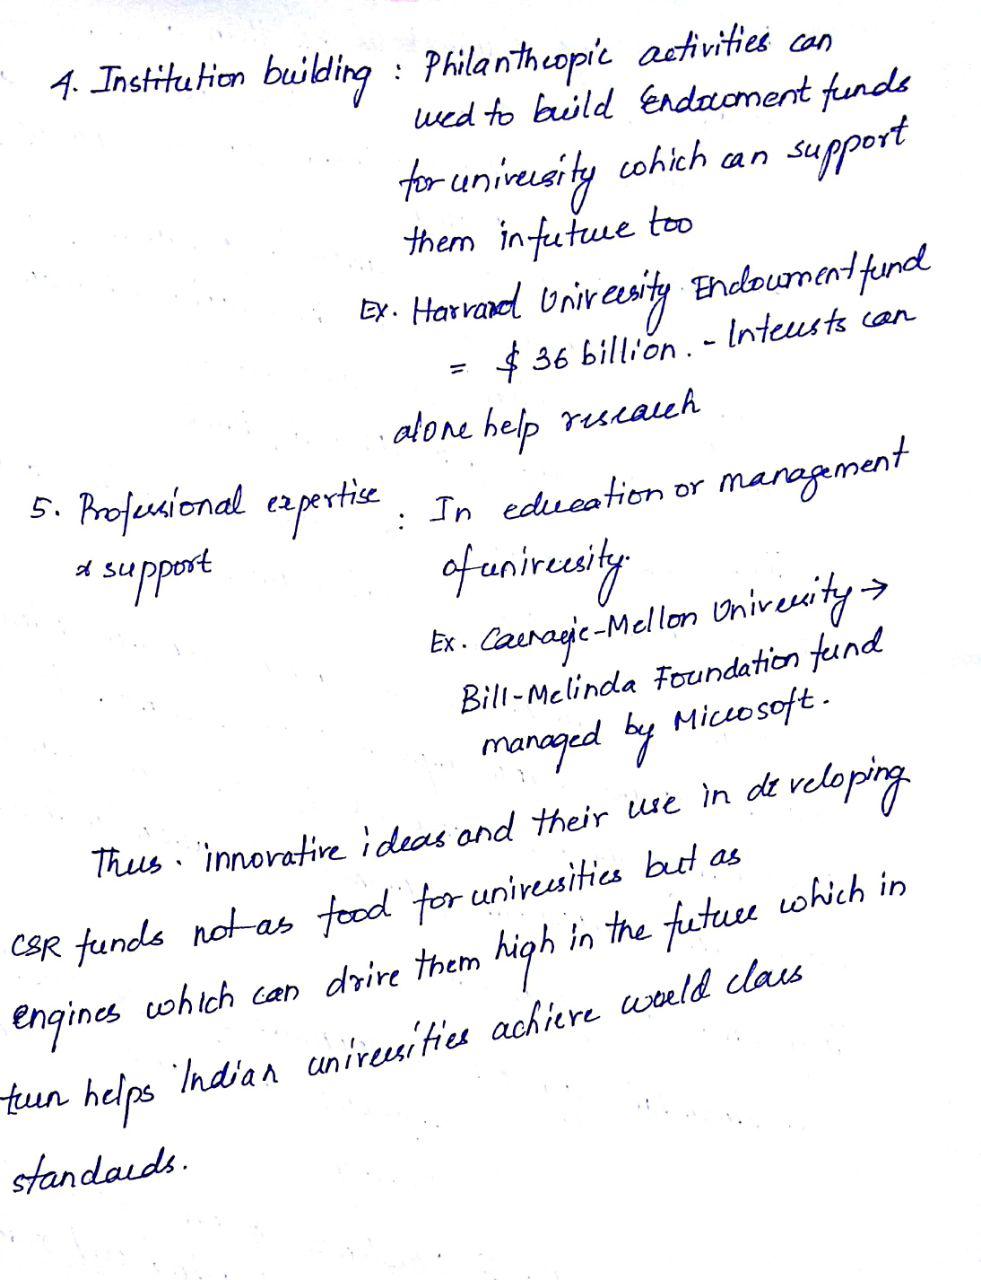 4. Institution building : Philanthropic activities can
used to build Endowment funds
for university which can support
them in future too
Ex. Harvard University Endowment fund
= $ 36 billion. - Interests can
alone help research
5. Professional expertise : In education or management
& support of university.
Ex. Carnagie-Mellon University →
Bill-Melinda Foundation fund
managed by Microsoft.
Thus innovative ideas and their use in developing
CSR funds not as food for universities but as
engines which can drive them high in the future which in
turn helps Indian universities achieve world class
standards.